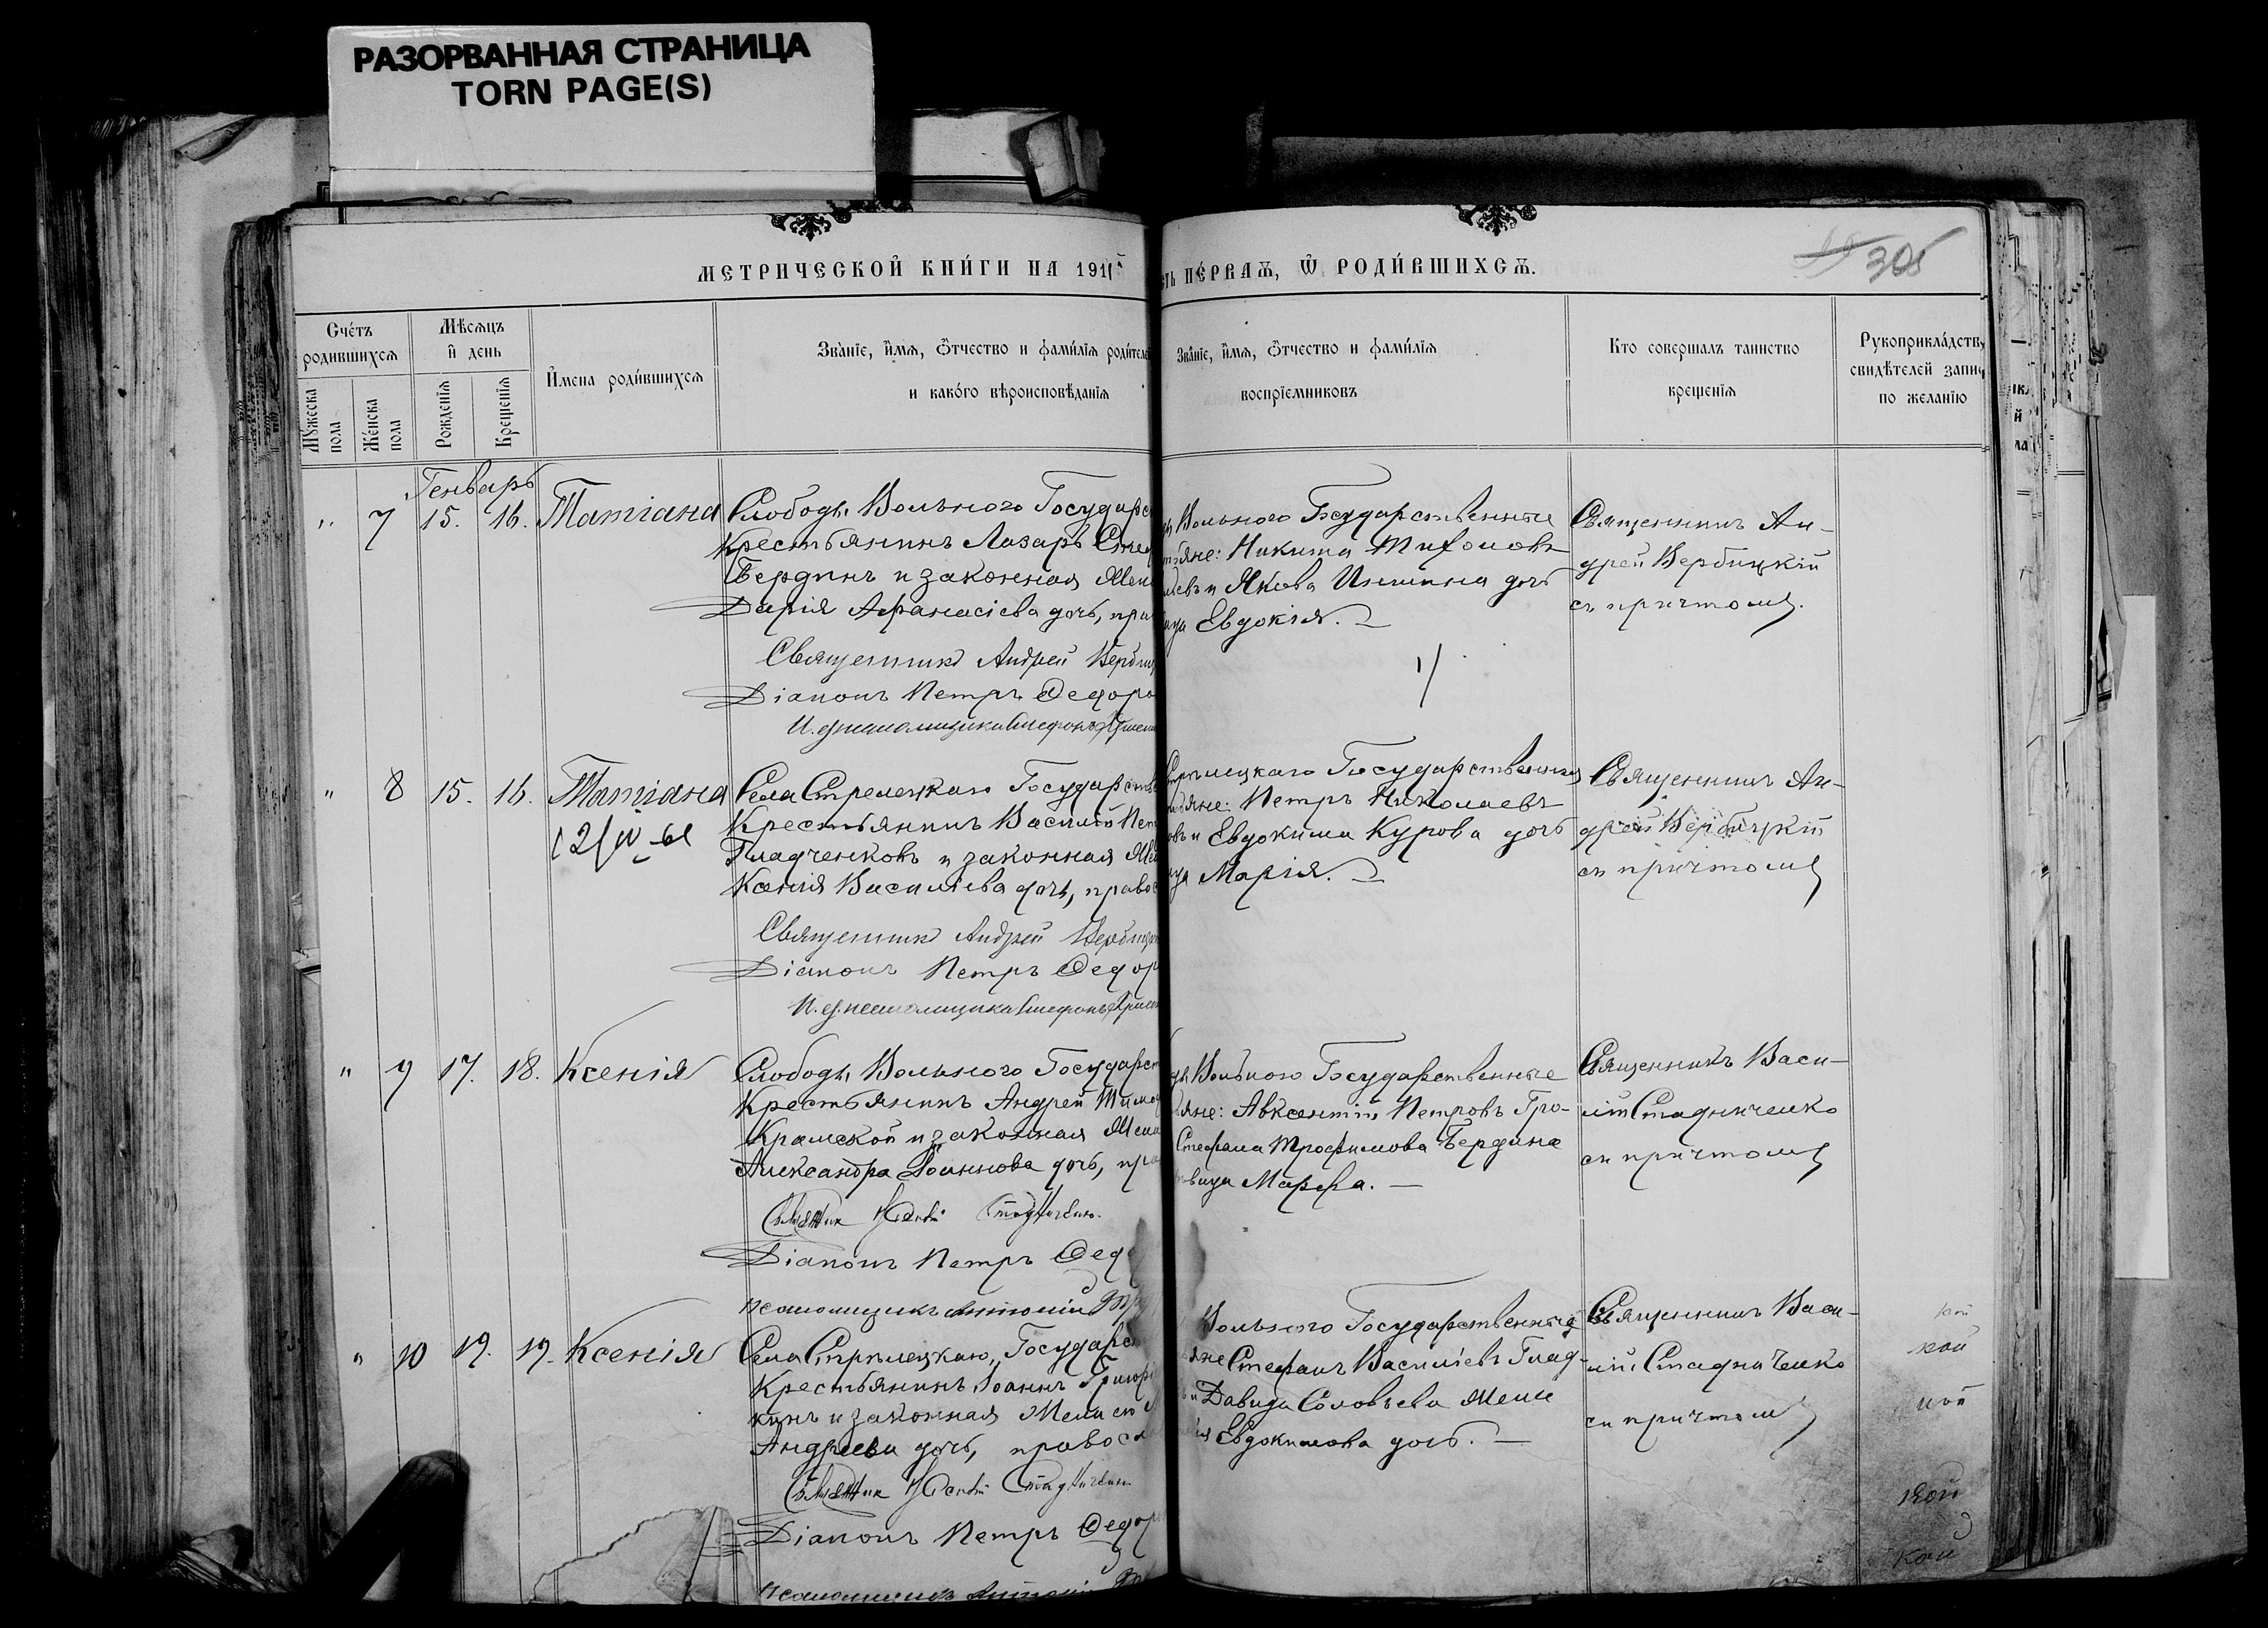 РАЗОРВАННАЯ СТРАНИЦА
TORN PAGE(S)
МЕТРИЧЕСКОЙ КНИ́ГИ НА 1911
сть ПЕ́РВАѦ, Ѿ РОДИ́ВШИХСѦ.
305
Сче́тъ родившихсѧ
Мѣсѧцъ и день
И́мена роди́вшихсѧ
Зва́нїе, и́мѧ, ѻ́тчество и фами́лїѧ роди́телей
и како́го вѣроисповѣ́данїѧ
Зва́нїе, и́мѧ, ѻ́тчество и фами́лїѧ
воспрїемниковъ
Кто совершалъ таинство
крещенїѧ
Рукоприкла́дству
свидѣтелей запис
по желанїю
Му́жеска пола
Же́нска пола
Рожденїѧ
Крещенїѧ
Генварь
" 7 15. 16. Татіана
Слободы Вольного Государс
крестьянинъ Лазарь
Бердинъ и законная Жен
Дарія Афанасіева дочь, пра
Священникъ Андрей Вербиц
Діаконъ Петръ Федоро
Вольного Государственные
тьяне: Никита Тихоновъ
и Якова Иншина дочь
ица Евдокія.
Священникъ Ан-
дрей Вербицкій
съ причтомъ.
" 8 15. 16. Татіана
Села Стрелецкаго Государств
Крестьянинъ Василій Пет
Гладченковъ и законная Же
Ксенія Василіева дочь, правос
Священникъ Андрей Вербиц
Діаконъ Петръ Федор
Стрѣлецкаго Государственные
тьяне: Петръ Николаевъ
овъ и Евдокима Курова дочь
ица Марія.
Священникъ Ан-
дрей Вербицкій
съ причтомъ
" 9 17. 18. Ксенія
Слободы Вольного Государст
Крестьянинъ Андрей Тимо
Крамской и законная Жен
Александра Іоаннова дочь, пра
Діаконъ Петръ Фед
Псаломщикъ Антоній
Вольного Государственные
тьяне: Авксентій Петровъ Гро-
Стефана Трофимова Бердина
вица Марфа.
Священникъ Васи-
лій Стадниченко
съ причтомъ
" 10 19. 19. Ксенія
Села Стрѣлецкаго, Государс
Крестьянинъ Іоаннъ Григорі
кинъ и законная Жена его
Андреева дочь, правосл
Діаконъ Петръ Федор
Псаломщикъ Антоній
Вольного Государственные
яне Стефанъ Василіевъ Глад-
и Давида Соловьева Жена
Евдокимова дочь.
Священникъ Васи-
лій Стадниченко
съ причтомъ